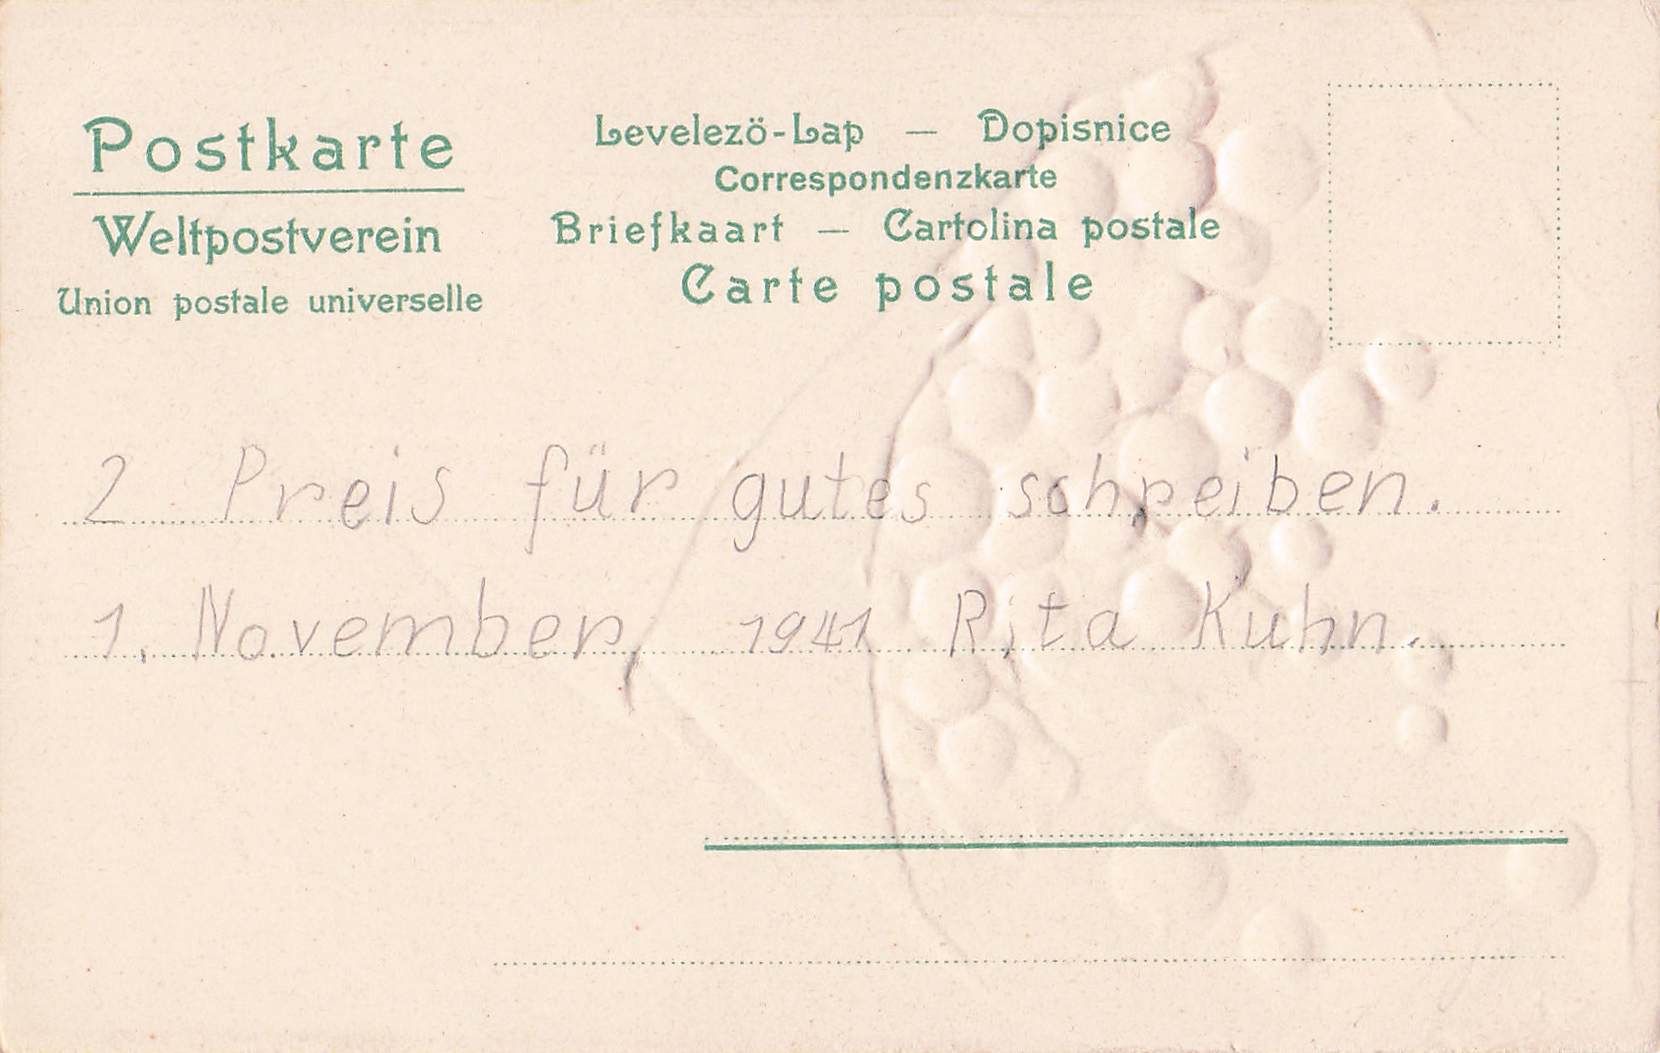 Postkarte
Weltpostverein
Union postale universelle
Levelezö-Lap — Dopisnice
Correspondenzkarte
Briefkaart — Cartolina postale
Carte postale
2 Preis für gutes schreiben.
1. November, 1941 Rita Kuhn.